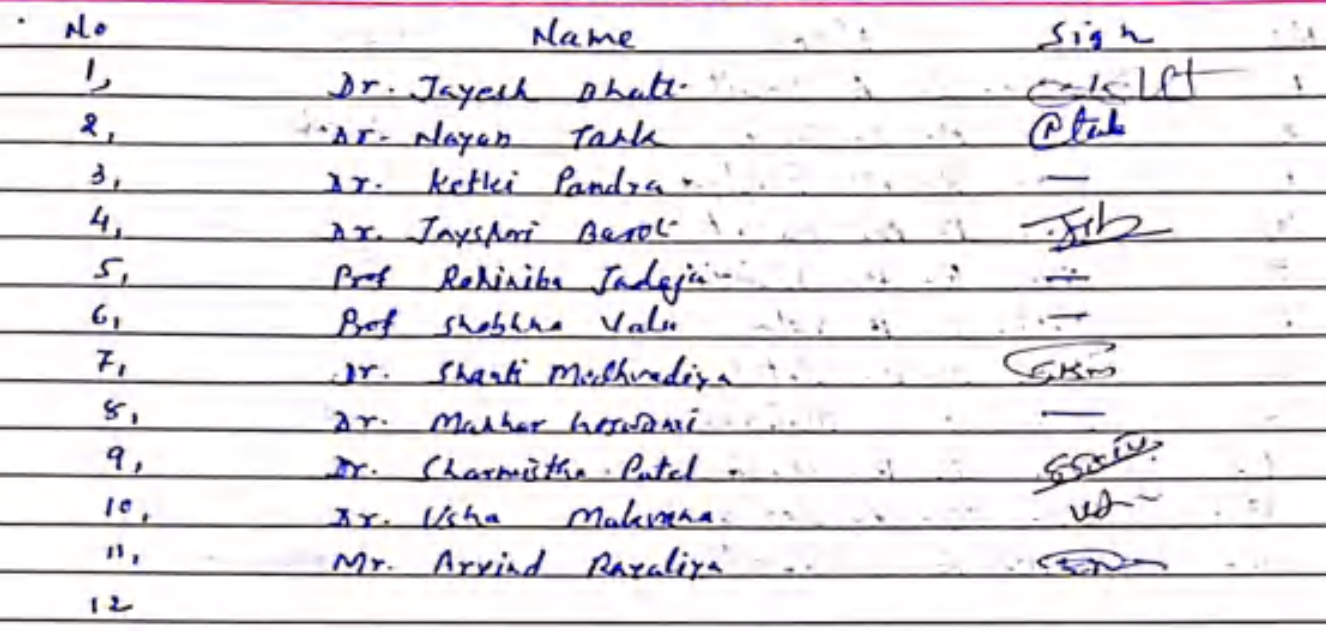 No Name Sign
1, Dr. Jayesh Bhatt
2, Dr. Nayan Tank
3, Dr. Ketki Pandya —
4, Dr. Jayshri Barot
5, Prof Rohiniba Jadeja —
6, Prof Shobhna Vala —
7, Dr. Shanti Modhvadiya
8, Dr. Manhar Goswami —
9, Dr. Charmistha Patel
10, Dr. Usha Makvana
11, Mr. Arvind
12